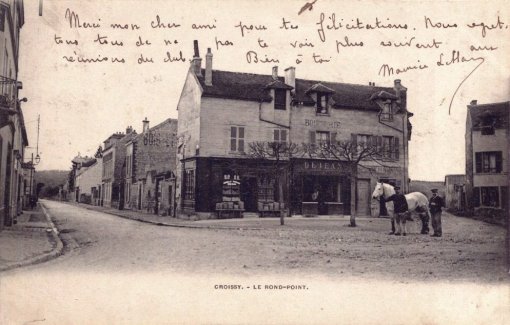 Merci mon cher ami pour tes félicitations. Nous regret-
tons tous de ne pas te voir plus souvent aux
réunions du club. Bien à toi
Maurice
DEJEAN
CROISSY. - LE ROND-POINT.